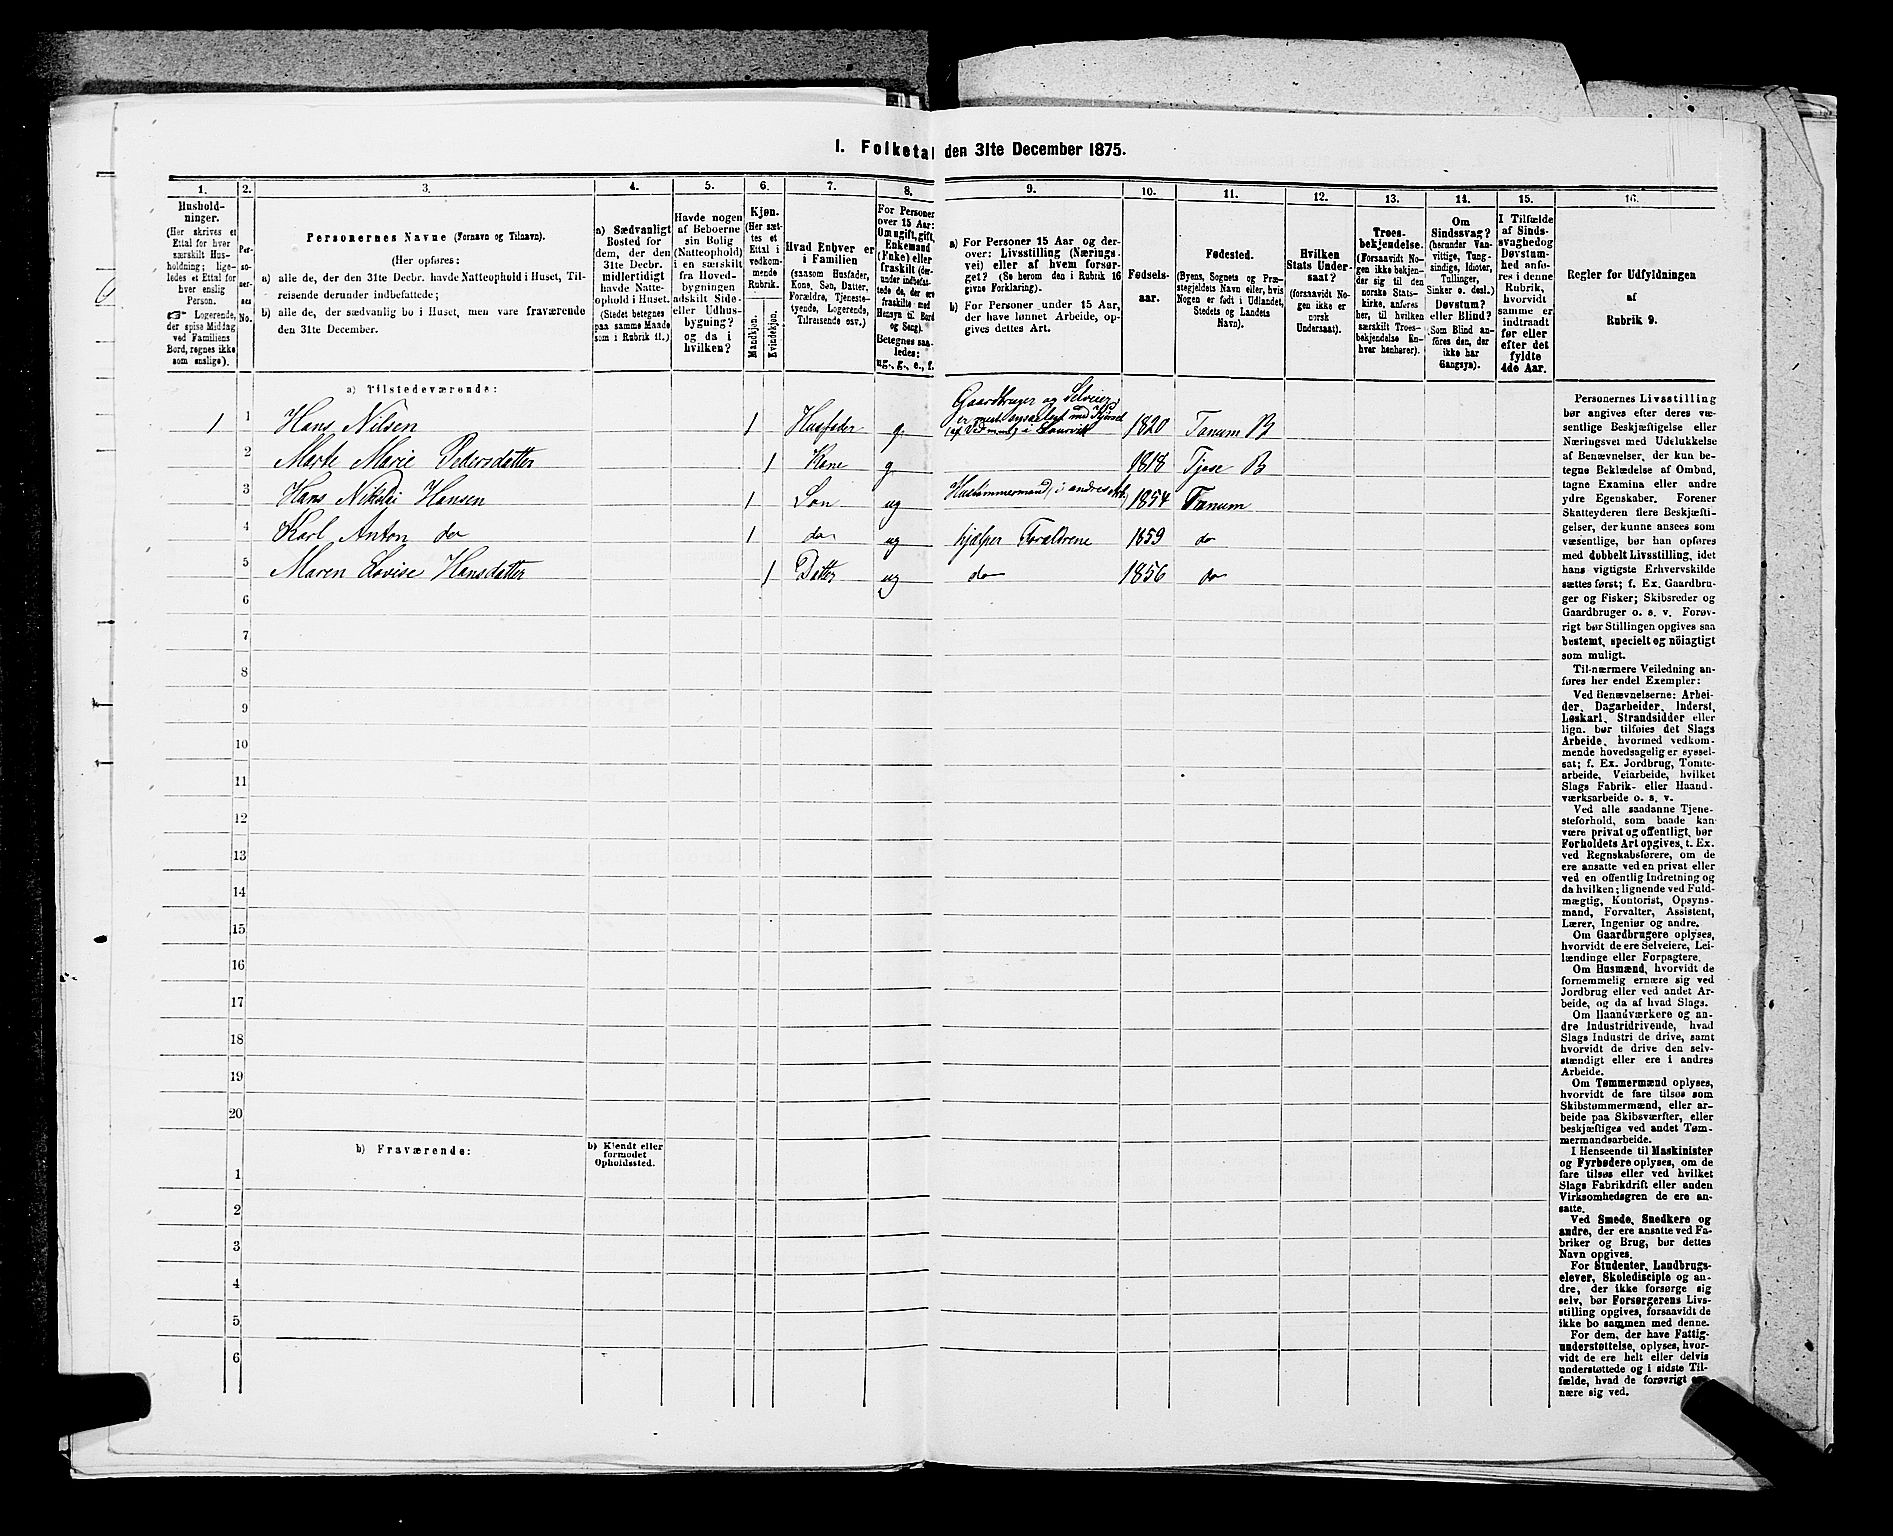 I. Folketal den 31te December 1875.
1. 2. 3. 4. 5. 6. 7. 8. 9. 10. 11. 12. 13. 14. 15. 16.
Hushold-
ninger.
(Her skrives et
Ettal for hver
særskilt Hus-
holdning; lige-
ledes et Ettal for
hver enslig
Person.
☞ Logerende,
der spise Middag
ved Familiens
Bord, regnes ikke
som enslige).
Per-
so-
ner-
nes
No.
Personernes Navne (Fornavn og Tilnavn).
(Her opføres:
a) alle de, der den 31te Decbr. havde Natteophold i Huset, Til-
reisende derunder indbefattede;
b) alle de, der sædvanlig bo i Huset, men vare fraværende
den 31te December.
a) Sædvanligt
Bosted for
dem, der den
31te Decbr.
midlertidigt
havde Natte-
ophold i Huset.
(Stedet betegnes
paa samme Maade
som i Rubrik 11.)
Havde nogen
af Beboerne
sin Bolig
(Natteophold)
i en særskilt
fra Hoved-
bygningen
adskilt Side-
eller Udhus-
bygning?
og da i
hvilken?
Kjøn.
(Her sæt-
tes et
Ettal i
vedkom-
mende
Rubrik.
Mandkjøn.
Kvindekjøn.
Hvad Enhver er
i Familien
(saasom Husfader,
Kone, Søn, Datter,
Forældre, Tjeneste-
tyende, Logerende,
Tilreisende osv.)
For Personer
over 15 Aar:
Om ugift, gift,
Enkemand
(Fnke) eller
fraskilt (der-
under indbefat-
tede de, der ere
fraskilte med
Hensyn til Bord
og Seng).
Betegnes saa-
ledes:
ug., g., e., f.
a) For Personer 15 Aar og der-
over: Livsstilling (Nærings-
vei) eller af hvem forsør-
get? (Se herom den i Rubrik 16
givne Forklaring).
b) For Personer under 15 Aar,
der have lønnet Arbeide, op-
gives dettes Art.
Fødsels-
aar.
Fødested.
(Byens, Sognets og Præ-
stegjeldets Navn eller, hvis
Nogen er født i Udlandet,
Stedets og Landets
Navn).
Hvilken
Stats Under-
saat?
(forsaavidt No-
gen ikke er
norsk
Undersaat).
Troes-
bekjendelse.
(Forsaavidt No-
gen ikke bekjen-
der sig til den
norske Stats-
kirke, anføres
her, til hvilken
særskilt Troes-
bekjendelse En-
hver henhører).
Om
Sindssvag?
(herunder Van-
vittige, Tung-
sindige, Idioter,
Tullinger,
Sinker o. desl.)
Døvstum?
eller Blind?
(Som Blind an-
føres den, der
ikke har
Gangsyn).
I Tilfælde
af Sinds-
svaghed og
Døvstum-
hed anfø-
res i denne
Rubrik,
hvorvidt
samme er
indtraadt
før eller
efter det
fyldte
4de Aar.
Regler for Udfyldningen
af
Rubrik 9.
a) Tilstedeværende:
1 1 Hans Nilsen 1 Husfader g. Gaardbruger og Selveier, 1820 Tanum B
2 Marte Marie Pedersdatter 1 Kone g 1818 Tjøse B
3 Hans Nikolai Hansen 1 Søn ug Hustømmermand, i andres Arb. 1854 Tanum
4 Karl Anton do 1 do ug hjælper Forældrene 1859 do
5 Maren Lovise Hansdatter 1 Datter ug do 1856 do
6
7
8
9
10
11
12
13
14
15
16
17
18
19
20
b) Fraværende:
b) Kjendt eller
formodet
Opholdssted.
1
2
3
4
5
6
Personernes Livsstilling
bør angives efter deres væ-
sentlige Beskjæftigelse eller
Næringsvei med Udelukkelse
af Benævnelser, der kun be-
tegne Beklædelse af Ombud,
tagne Examina eller andre
ydre Egenskaber. Forener
Skatteyderen flere Beskjæfti-
gelser, der kunne ansees som
væsentlige, bør han opføres
med dobbelt Livsstilling, idet
hans vigtigste Erhvervskilde
sættes først; f. Ex. Gaardbru-
ger og Fisker; Skibsreder og
Gaardbruger o. s. v. Forøv-
rigt bør Stillingen opgives saa
bestemt, specielt og nöiagtigt
som muligt.
Til-nærmere Veiledning an-
føres her endel Exempler:
Ved Benævnelserne: Arbei-
der, Dagarbeider, Inderst,
Løskarl, Strandsidder eller
lign. bør tilføies det Slags
Arbeide, hvormed vedkom-
mende hovedsagelig er syssel-
sat; f. Ex. Jordbrug, Tomte-
arbeide, Veiarbeide, hvilket
Slags Fabrik- eller Haand-
værksarbeide o. s. v.
Ved alle saadanne Tjene-
steforhold, som baade kan
være privat og offentligt, bør
Forholdets Art opgives, t. Ex.
ved Regnskabsførere, om de
ere ansatte ved en privat eller
ved en offentlig Indretning og
da hvilken; lignende ved Fuld-
mægtig, Kontorist, Opsyns-
mand, Forvalter, Assistent,
Lærer, Ingeniør og andre.
Om Gaardbrugere oplyses,
hvorvidt de ere Selveiere, Lei-
lændinge eller Forpagtere.
Om Husmænd, hvorvidt de
fornemmelig ernære sig ved
Jordbrug eller ved andet Ar-
beide, og da af hvad Slags.
Om Haandværkere og an-
dre Industridrivende, hvad
Slags Industri de drive, samt
hvorvidt de drive den selv-
stændigt eller ere i andres
Arbeide.
Om Tømmermænd oplyses,
hvorvidt de fare tilsøs som
Skibstømmermænd, eller ar-
beide paa Skibsværfter, eller
beskjæftiges ved andet Tøm-
mermandsarbeide.
I Henseende til Maskinister
og Fyrbødere oplyses, om de
fare tilsøs eller ved hvilket
Slags Fabrikdrift eller anden
Virksomhedsgren de ere an-
satte.
Ved Smede, Snedkere og
andre, der ere ansatte ved Fa-
briker og Brug, bør dettes
Navn opgives.
For Studenter, Landbrugs-
elever, Skoledisciple og an-
dre, der ikke forsørge sig
selv, bør Forsørgerens Livs-
stilling opgives, forsaavidt de
ikke bo sammen med denne.
For dem, der have Fattig-
understøttelse, oplyses, hvor-
vidt de ere helt eller delvis
understøttede og i sidste Til-
fælde, hvad de forøvrigt er-
nære sig ved.